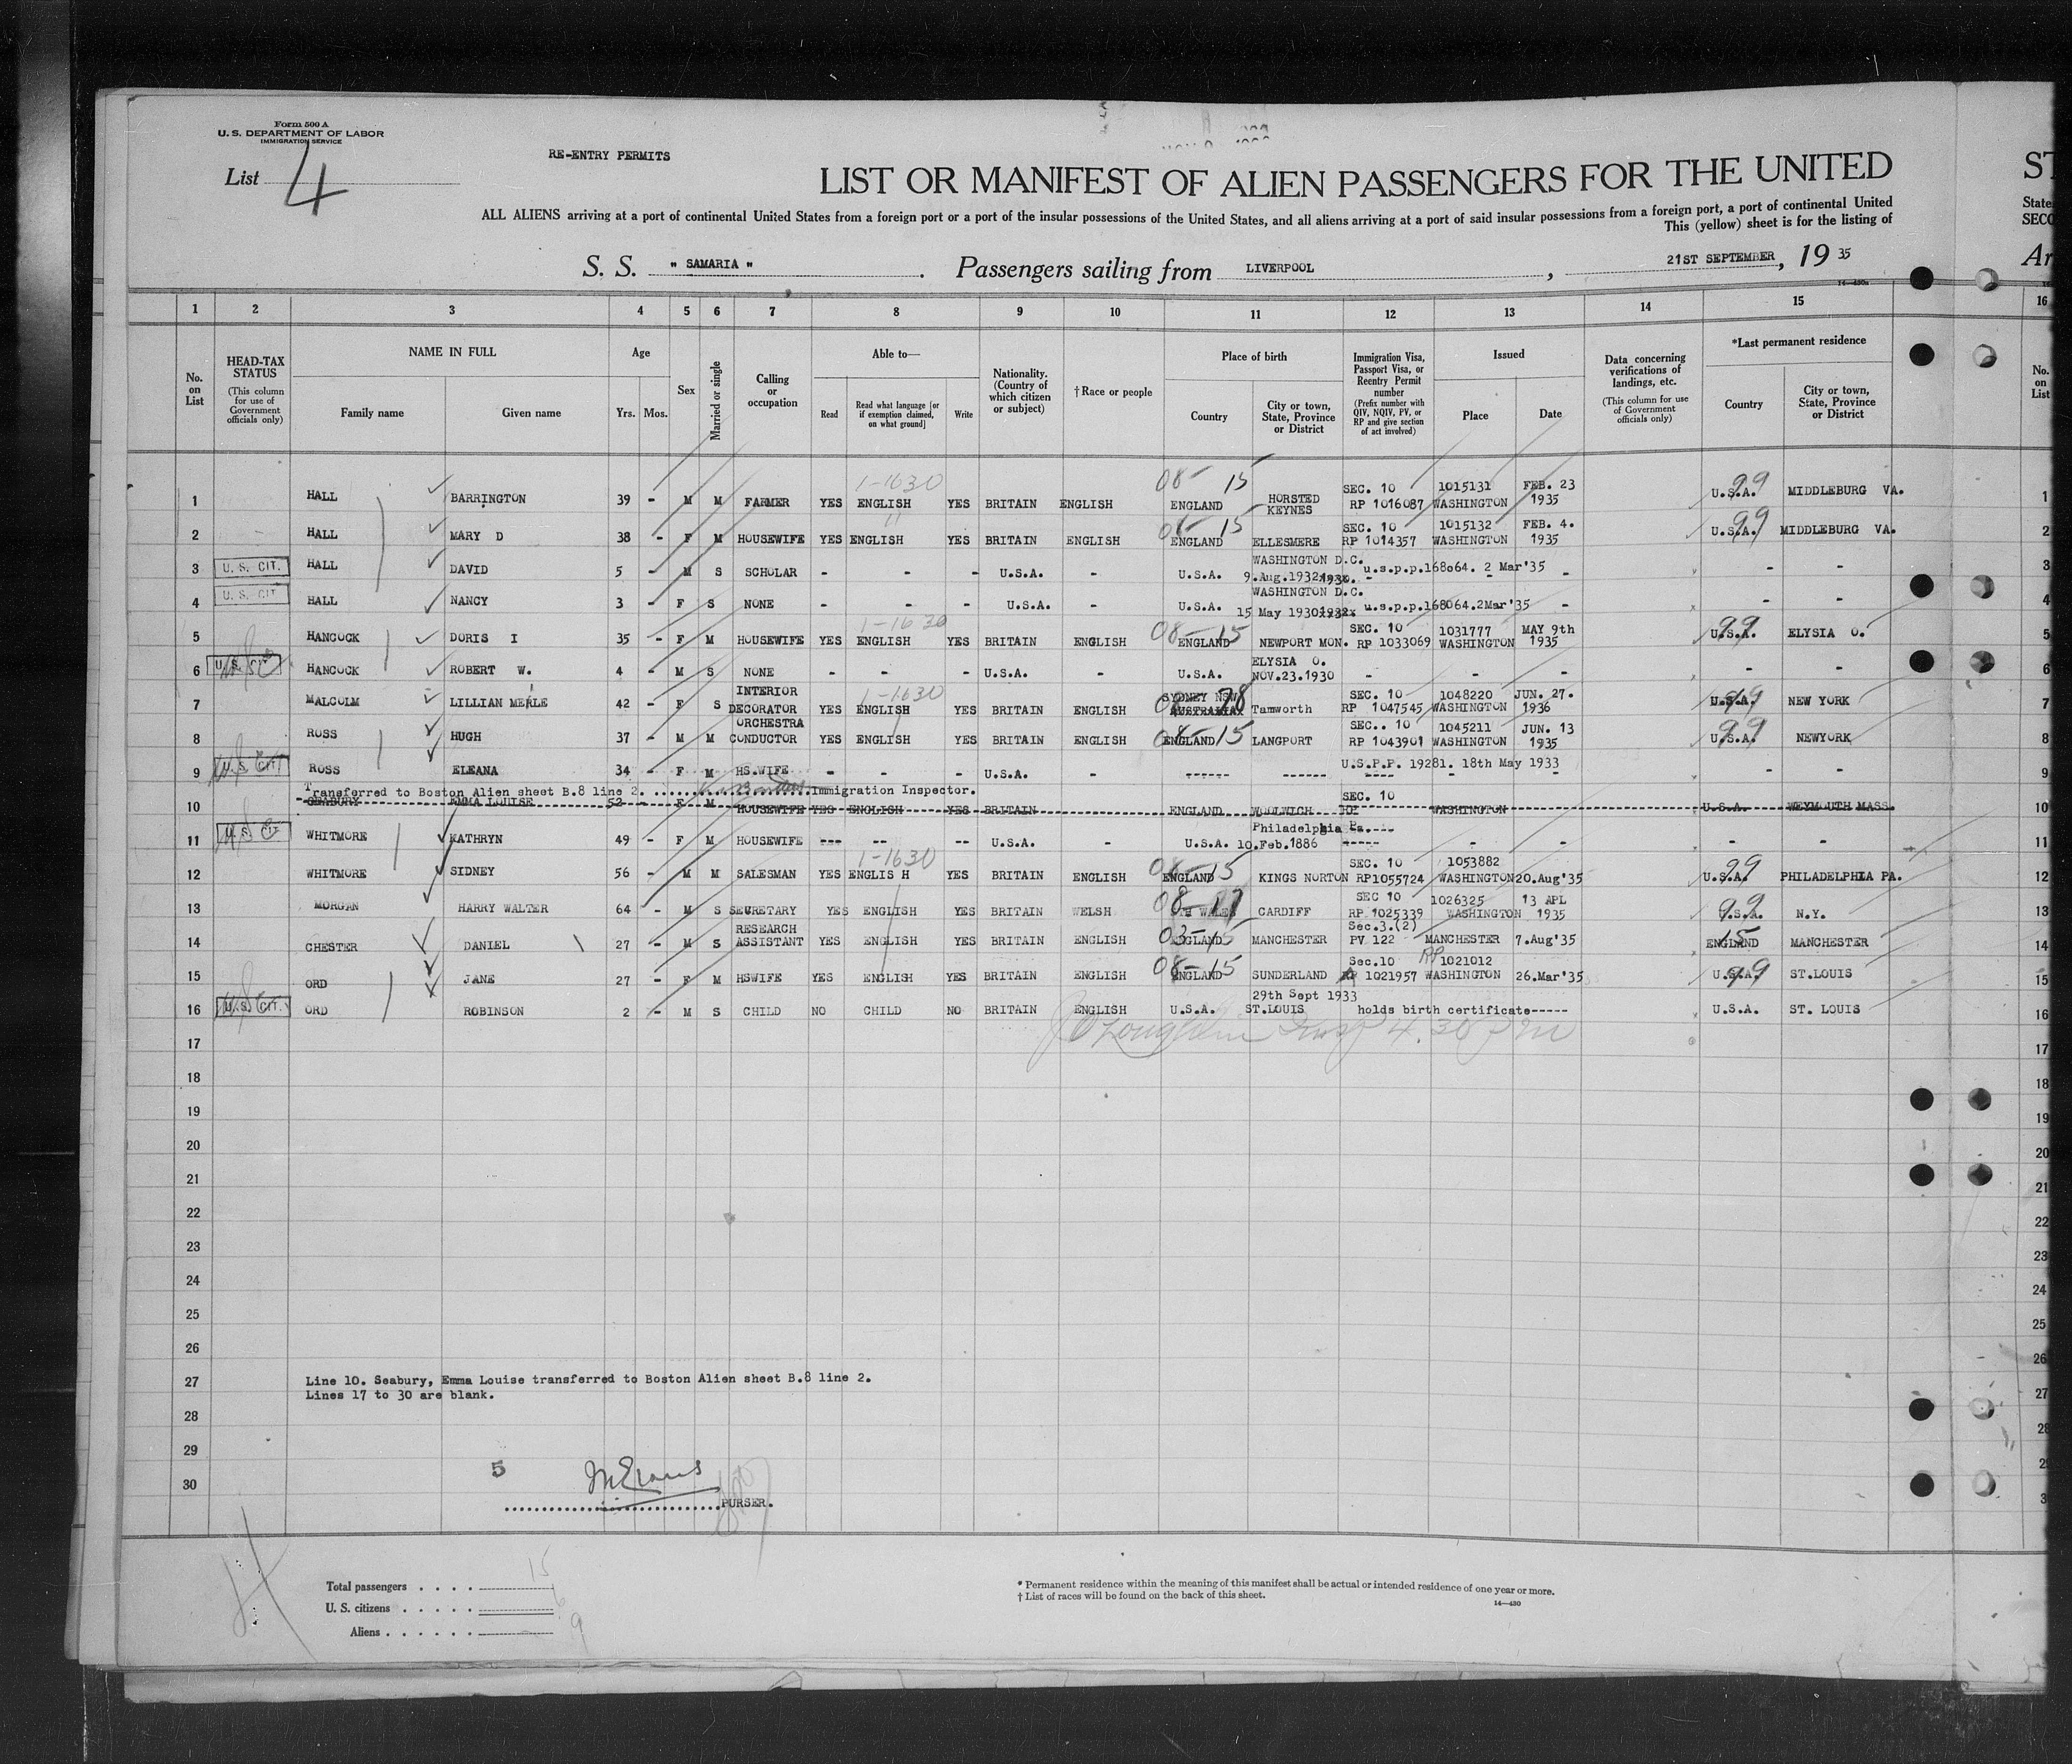 Form 500 A
U. S. DEPARTMENT OF LABOR
IMMIGRATION SERVICE
List 4
RE-ENTRY PERMITS
LIST OR MANIFEST OF ALIEN PASSENGERS FOR THE UNITED
ST
ALL ALIENS arriving at a port of continental United States from a foreign port or a port of the insular possessions of the United States, and all aliens arriving at a port of said insular possessions from a foreign port, a port of continental United
State
This (yellow) sheet is for the listing of
SECO
S. S. " SAMARIA " . Passengers sailing from LIVERPOOL , 21ST SEPTEMBER, 19 35
Ar
1 2 3 4 5 6 7 8 9 10 11 12 13 14 15 16
No. on List
HEAD-TAX STATUS (This column for use of Government officials only)
NAME IN FULL Family name Given name
Age Yrs. Mos.
Sex
Married or single
Calling or occupation
Able to— Read Read what language [or if exemption claimed, on what ground] Write
Nationality. (Country of which citizen or subject)
† Race or people
Place of birth Country City or town, State, Province or District
Immigration Visa, Passport Visa, or Reentry Permit number (Prefix number with QIV, NQIV, PV, or RP and give section of act involved)
Issued Place Date
Data concerning verifications of landings, etc. (This column for use of Government officials only)
*Last permanent residence Country City or town, State, Province or District
No. on List
1 HALL BARRINGTON 39 - M M FARMER YES 1-1630 ENGLISH YES BRITAIN ENGLISH 08-15 ENGLAND HORSTED KEYNES SEC. 10 RP 1016087 1015131 WASHINGTON FEB. 23 1935 99 U.S.A. MIDDLEBURG VA. 1
2 HALL MARY D 38 - F M HOUSEWIFE YES ENGLISH YES BRITAIN ENGLISH 08-15 ENGLAND ELLESMERE SEC. 10 RP 1014357 1015132 WASHINGTON FEB. 4. 1935 99 U.S.A. MIDDLEBURG VA. 2
3 U. S. CIT. HALL DAVID 5 - M S SCHOLAR - - - U.S.A. - U.S.A. WASHINGTON D.C. 9.Aug.1932 1930. u.s.p.p.168064. 2 Mar'35 - - - 3
4 U. S. CIT HALL NANCY 3 - F S NONE - - - U.S.A. - U.S.A. WASHINGTON D.C. 15 May 1930 1932x u.s.p.p.168064.2Mar'35 - 4
5 HANCOCK DORIS I 35 - F M HOUSEWIFE YES 1-1630 ENGLISH YES BRITAIN ENGLISH 08-15 ENGLAND NEWPORT MON. SEC. 10 RP 1033069 1031777 WASHINGTON MAY 9th 1935 99 U.S.A. ELYSIA O. 5
6 U. S. CIT HANCOCK ROBERT W. 4 - M S NONE - - - U.S.A. - U.S.A. ELYSIA O. NOV.23.1930 - - - - - 6
7 MALCOLM LILLIAN MERLE 42 - F S INTERIOR DECORATOR YES 1-1630 ENGLISH YES BRITAIN ENGLISH 08-28 SYDNEY NSW AUSTRALIA Tamworth SEC. 10 RP 1047545 1048220 WASHINGTON JUN. 27. 1936 99 U.S.A. NEW YORK 7
8 ROSS HUGH 37 - M M ORCHESTRA CONDUCTOR YES ENGLISH YES BRITAIN ENGLISH 08-15 ENGLAND LANGPORT SEC.. 10 RP 1043901 1045211 WASHINGTON JUN. 13 1935 99 U.S.A. NEWYORK 8
9 U. S. CIT ROSS ELEANA 34 - F M HS.WIFE - - - U.S.A. - ------ ------ U.S.P.P. 19281. 18th May 1933 ---- - - - - 9
Transferred to Boston Alien sheet B.8 line 2. Immigration Inspector.
10 SEABURY EMMA LOUISE 52 - F M HOUSEWIFE YES ENGLISH YES BRITAIN ENGLAND WOOLWICH SEC. 10 RP WASHINGTON U.S.A. WEYMOUTH MASS. 10
11 U. S. CIT WHITMORE KATHRYN 49 - F M HOUSEWIFE --- -- -- U.S.A. - U.S.A. Philadelphia Pa. 10.Feb.1886 ----- - - - - 11
12 WHITMORE SIDNEY 56 - M M SALESMAN YES 1-1630 ENGLIS H YES BRITAIN ENGLISH 08-15 ENGLAND KINGS NORTON SEC. 10 RP1055724 1053882 WASHINGTON 20.Aug'35 99 U.S.A. PHILADELPHIA PA. 12
13 MORGAN HARRY WALTER 64 - M S SECRETARY YES ENGLISH YES BRITAIN WELSH 08-17 STH WALES CARDIFF SEC 10 RP 1025339 1026325 WASHINGTON 13 APL 1935 99 U.S.A. N.Y. 13
14 CHESTER DANIEL 27 - M S RESEARCH ASSISTANT YES ENGLISH YES BRITAIN ENGLISH 03-15 ENGLAND MANCHESTER Sec.3.(2) PV 122 MANCHESTER 7.Aug'35 15 ENGLAND MANCHESTER 14
15 ORD JANE 27 - F M HSWIFE YES ENGLISH YES BRITAIN ENGLISH 08-15 ENGLAND SUNDERLAND Sec.10 RP 1021957 RP 1021012 WASHINGTON 26.Mar'35 99 U.S.A. ST.LOUIS 15
16 U. S. CIT. ORD ROBINSON 2 - M S CHILD NO CHILD NO BRITAIN ENGLISH U.S.A. 29th Sept 1933 ST.LOUIS holds birth certificate----- U.S.A. ST. LOUIS 16
17 Insp 4.30 pm 17
18 18
19 19
20 20
21 21
22 22
23 23
24 24
25 25
26 26
27 Line 10. Seabury, Emma Louise transferred to Boston Alien sheet B.8 line 2. 27
Lines 17 to 30 are blank.
28 28
29 29
30 3
5 PURSER.
Total passengers . . . . 15
U. S. citizens . . . . . 6
Aliens . . . . . . 9
* Permanent residence within the meaning of this manifest shall be actual or intended residence of one year or more.
† List of races will be found on the back of this sheet.
14—430